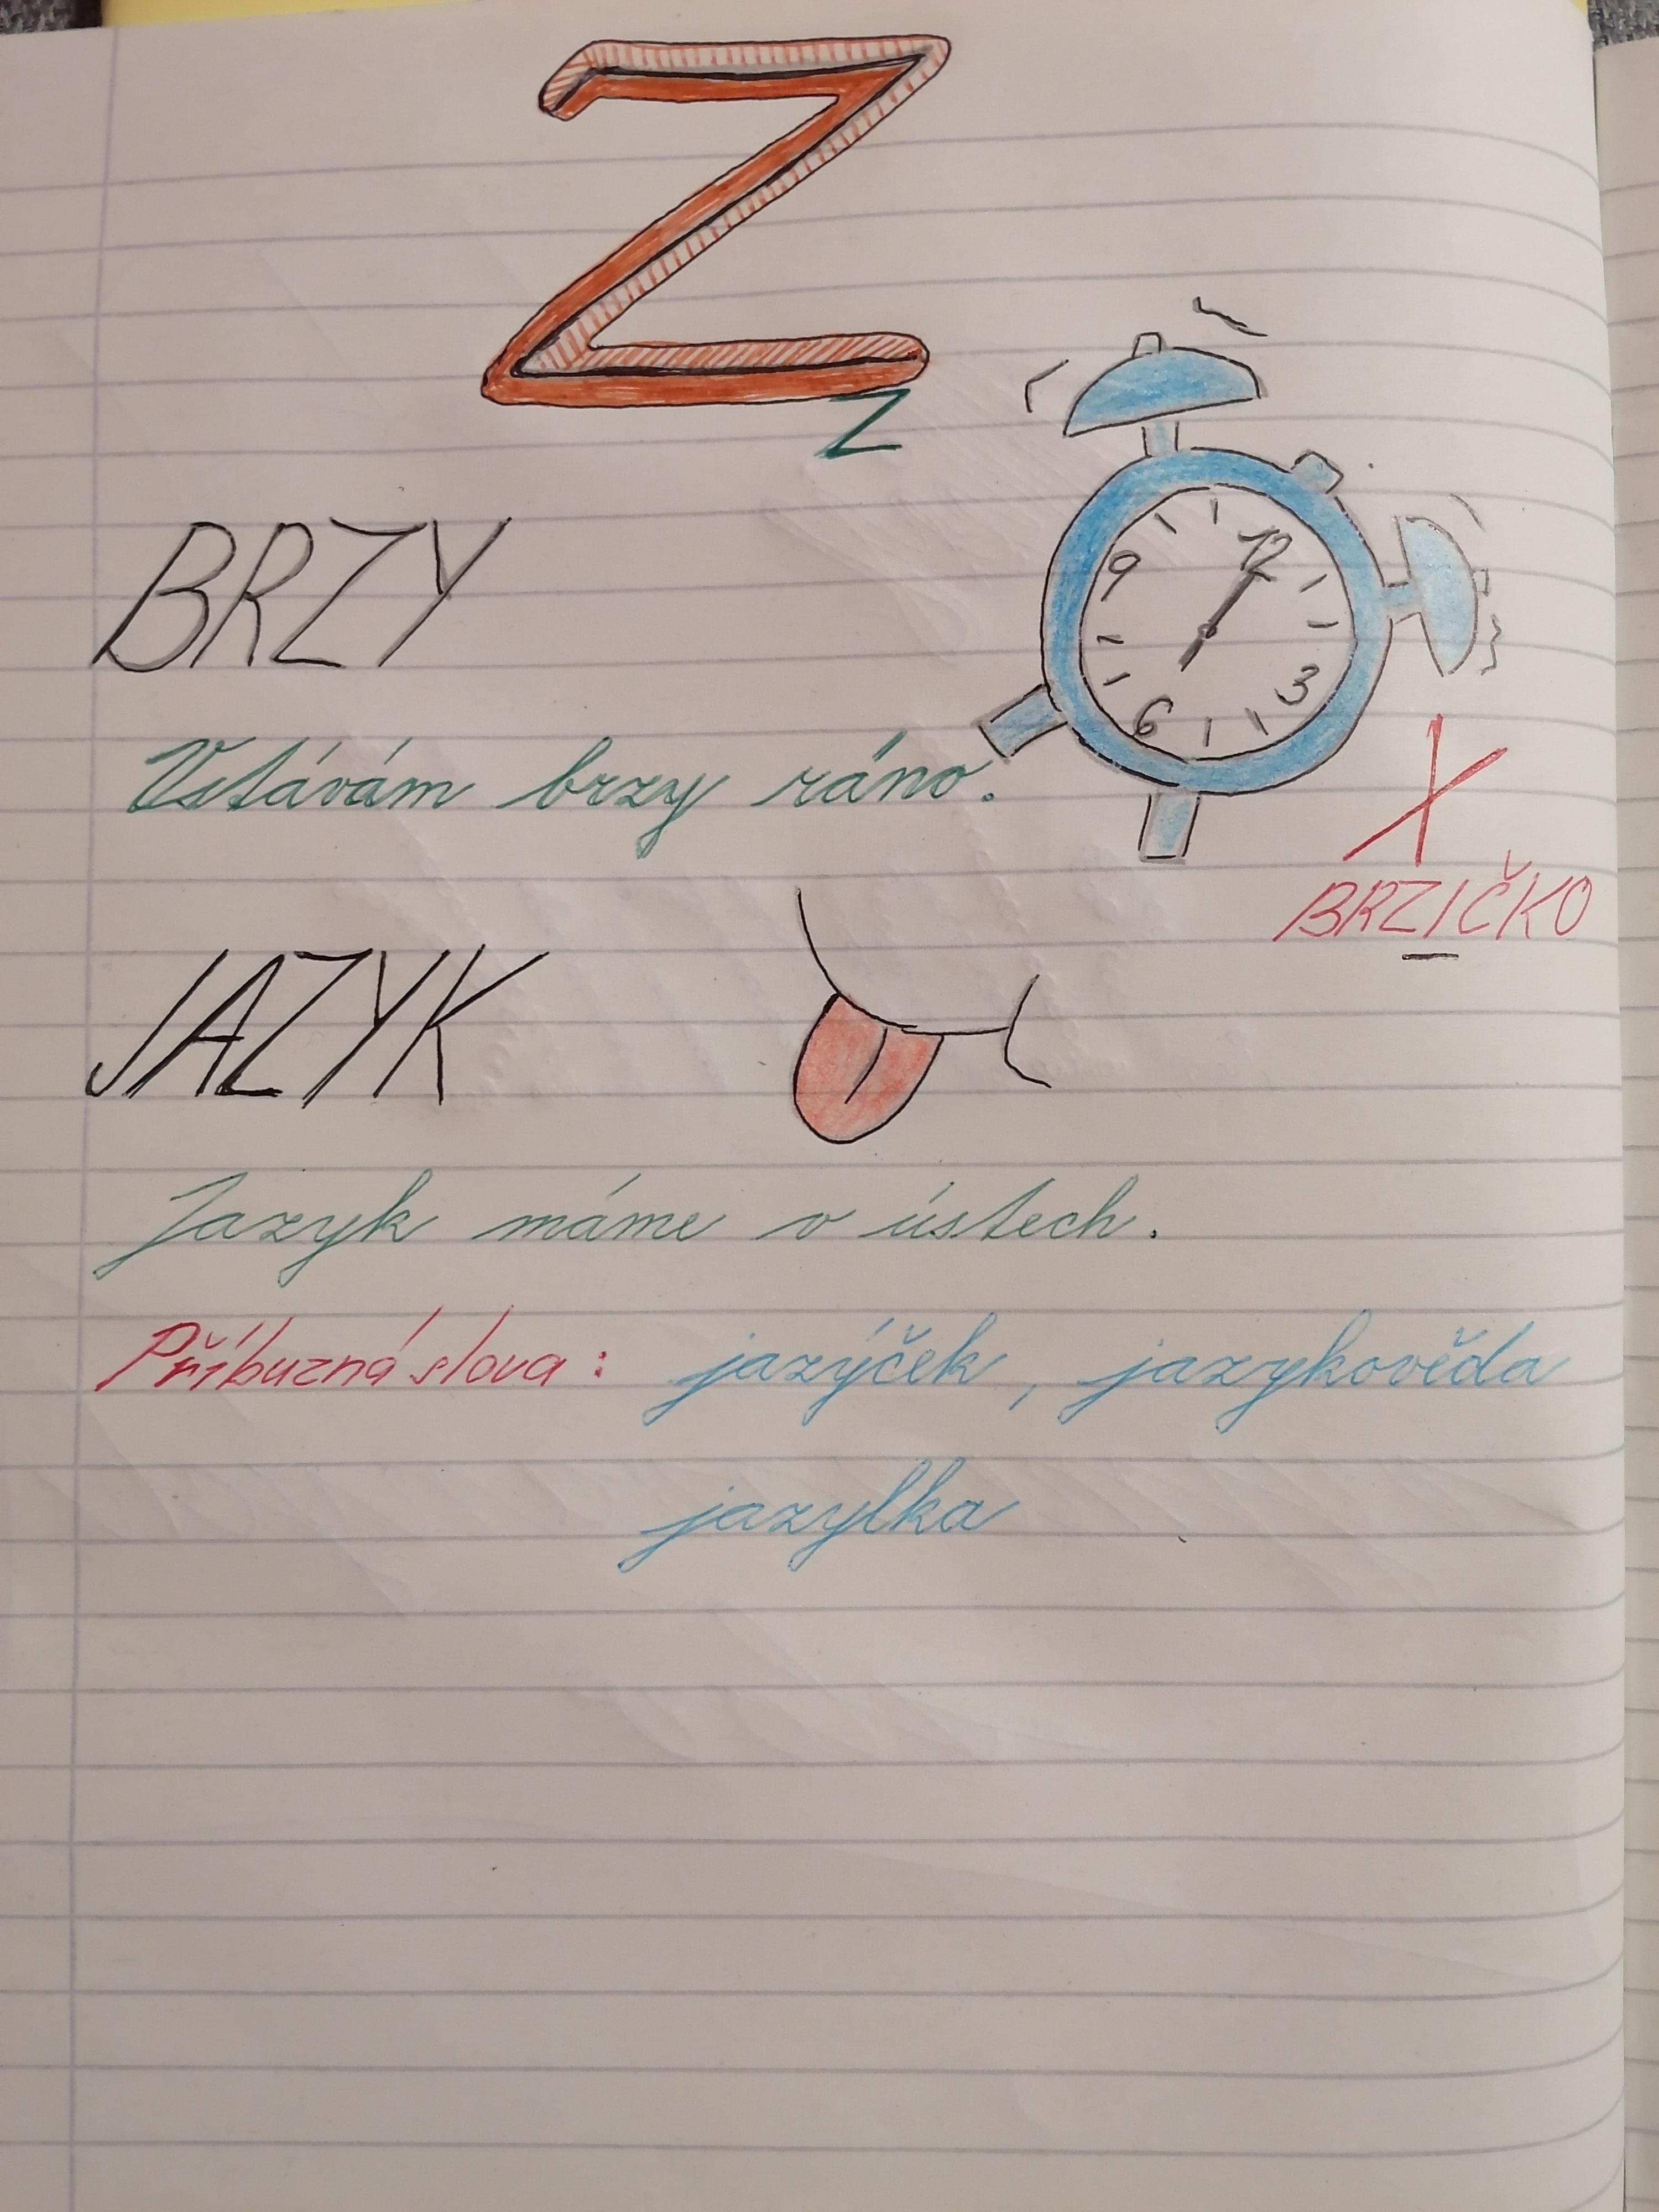 Z
z
BRZY
12
9
3
6
Vstávám brzy ráno.
X
BRZIČKO
JAZYK
Jazyk máme v ústech.
Příbuzná slova: jazýček, jazykověda
jazylka